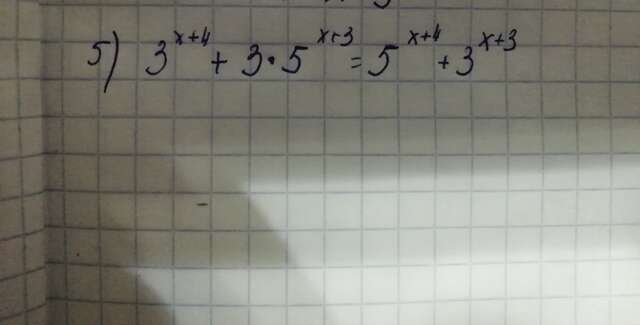 5) 3^{x+4} + 3·5^{x+3} = 5^{x+4} + 3^{x+3}